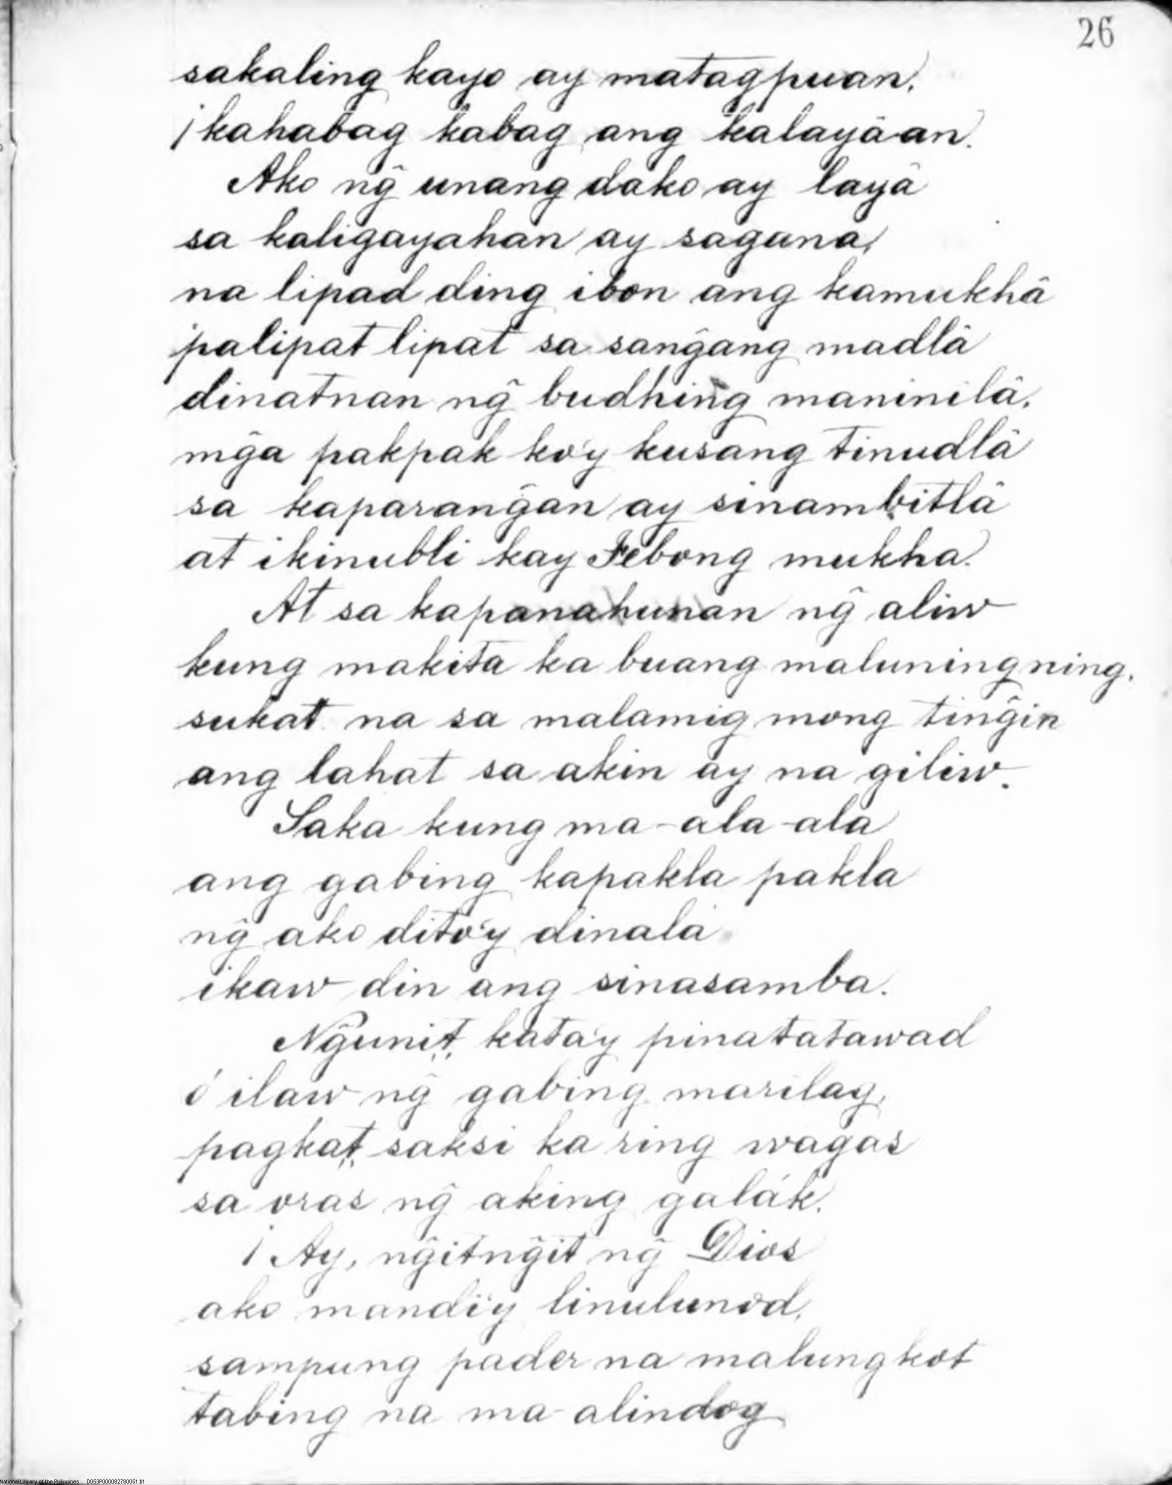 26
sakaling kayo ay matagpuan.
¡kahabag habag ang kalayâan.
Ako ng̃ unang dako ay layâ
sa kaligayahan ay sagana,
na lipad ding ibon ang kamukhâ
palipat lipat sa sang̃ang madlâ
dinatnan ng̃ budhing maninilâ,
mg̃a pakpak ko'y kusang tinudlâ
sa kaparang̃an ay sinambitlâ
at ikinubli kay Febong mukha.
At sa kapanahunan ng̃ aliw
kung makita ka buang maluningning.
sukat na sa malamig mong ting̃in
ang lahat sa akin ay na giliw.
Saka kung ma-ala-ala
ang gabing kapakla pakla
ng̃ ako dito'y dinala
ikaw din ang sinasamba.
Ng̃unit, kata'y pinatatawad
ó ilaw ng̃ gabing marilag,
pagkat, saksi ka ring wagas
sa oras ng̃ aking galák.
¡Ay, ng̃itng̃it ng̃ Dios
ako mandi'y linulunod,
sampung pader na malungkot
tabing na ma-alindog
National Library of the Philippines